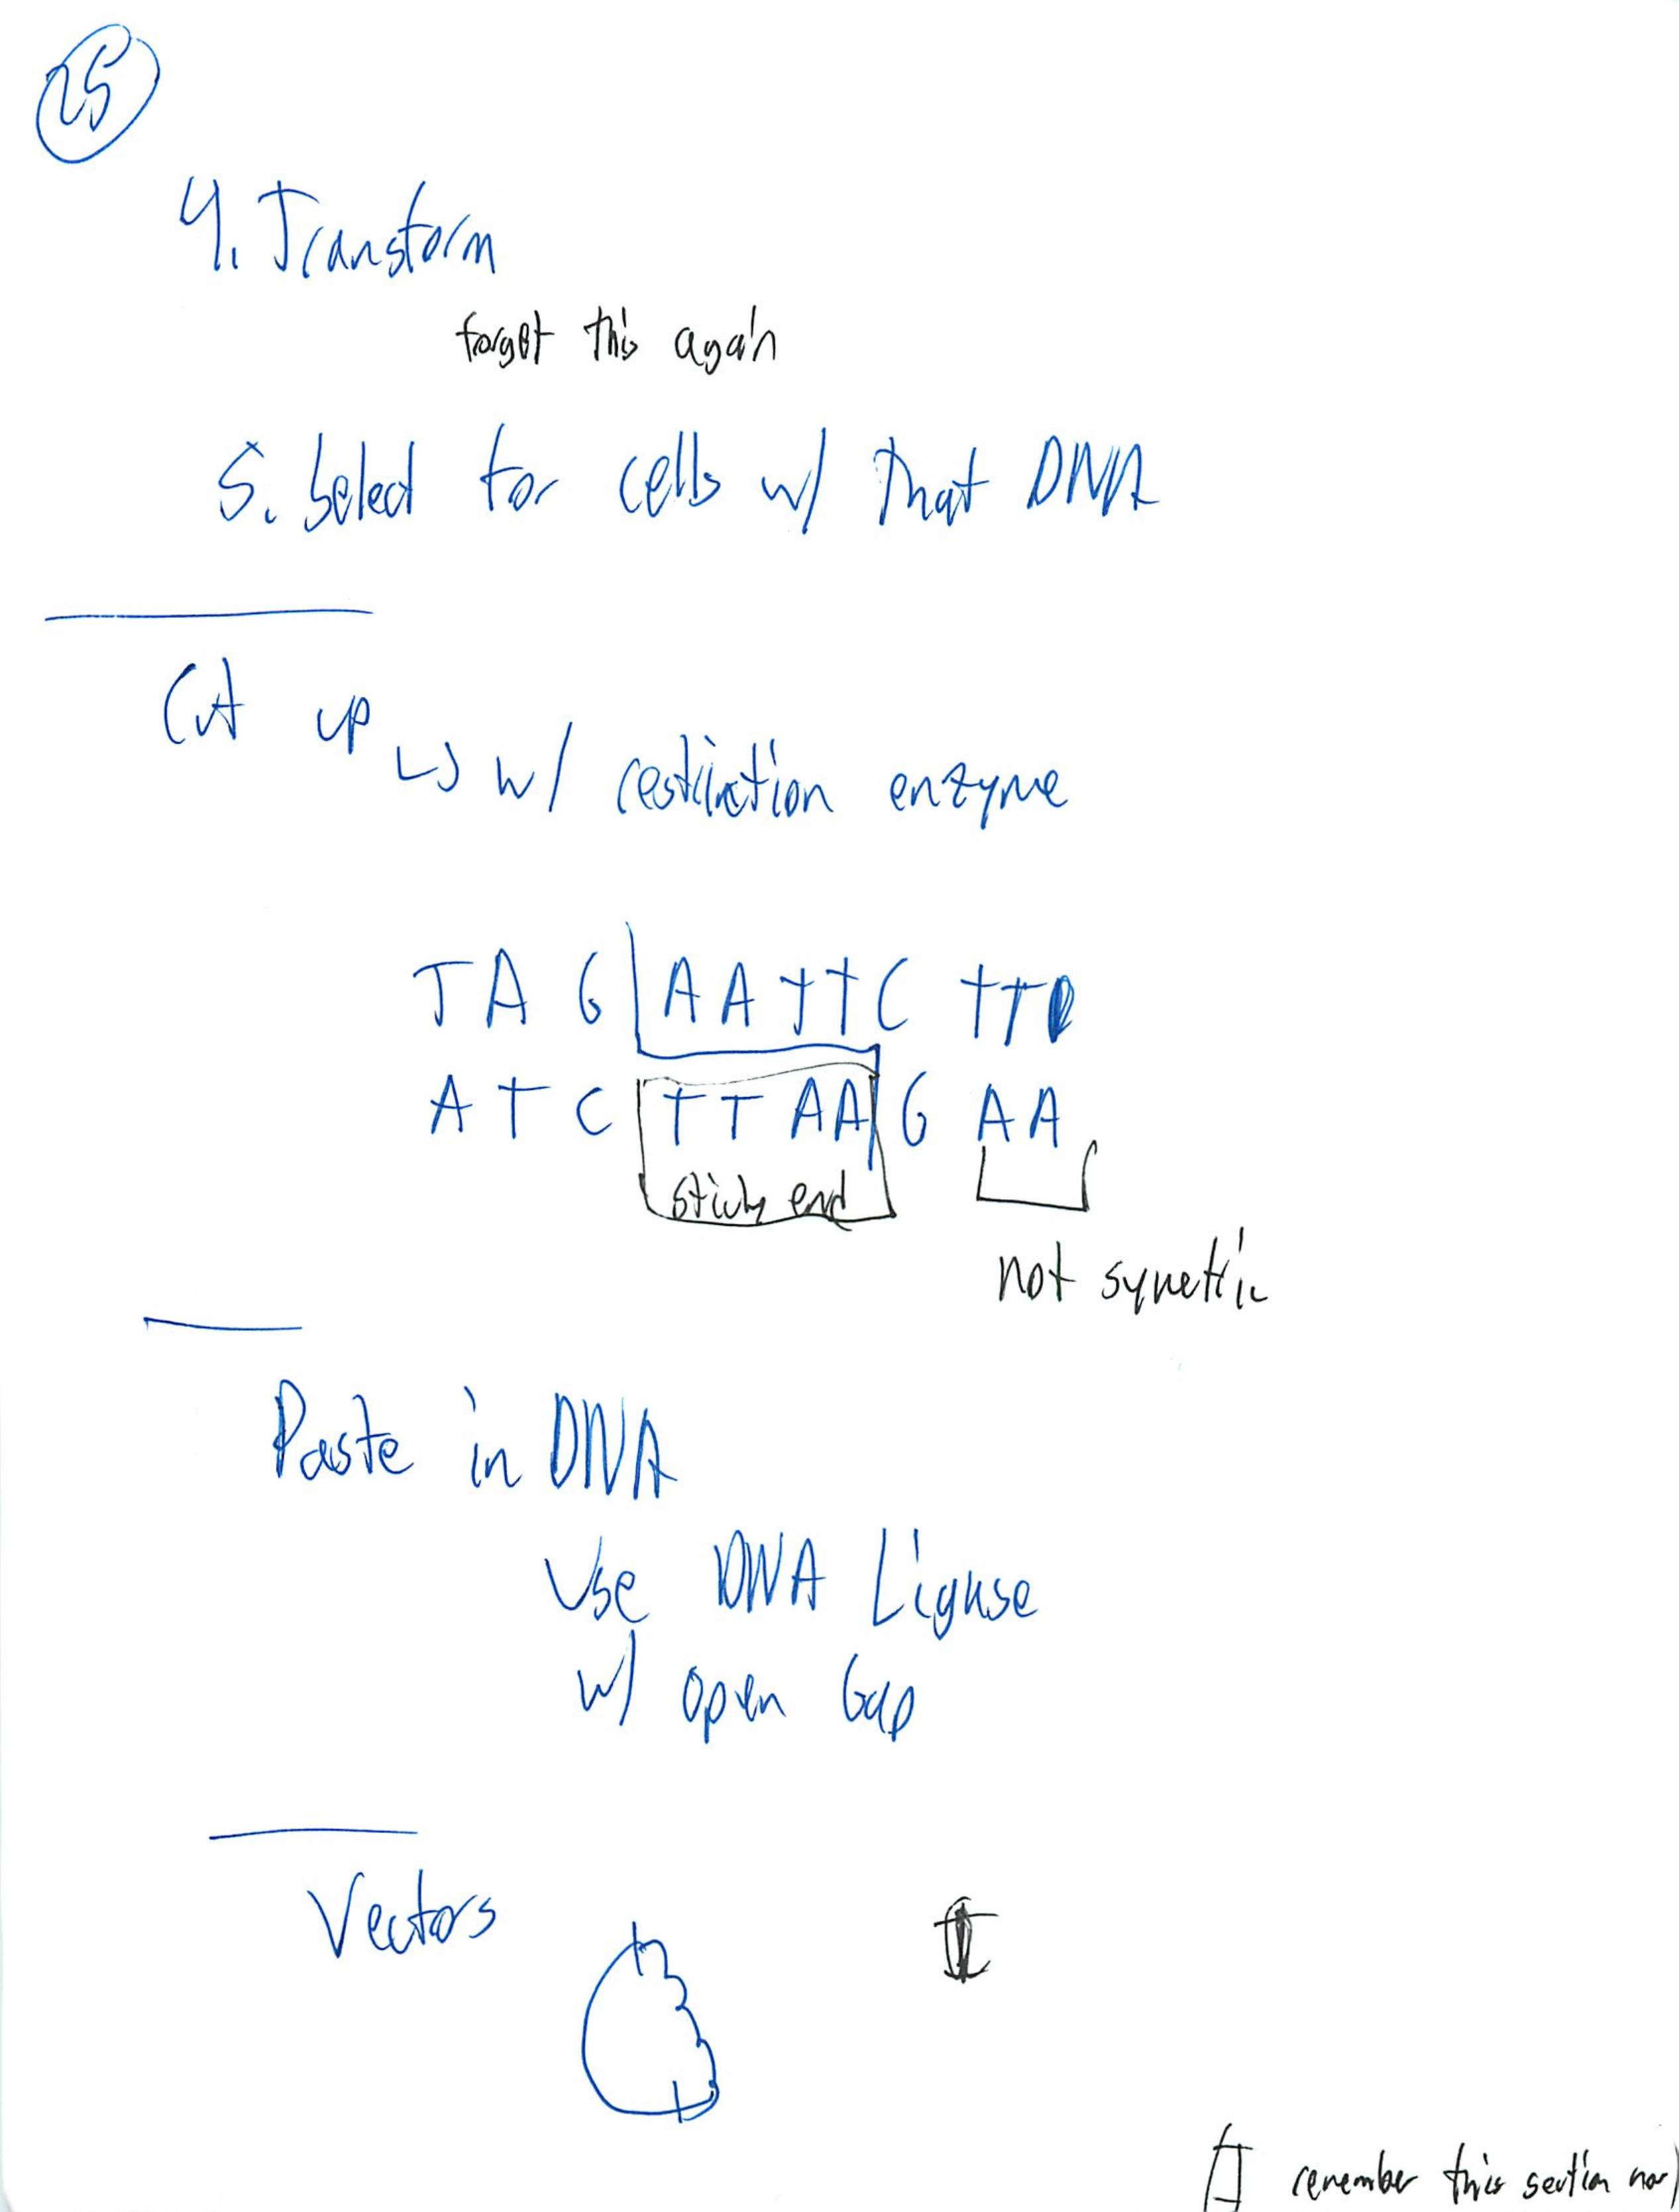 25
4. Transform
forgot this again
5. Select for cells w/ that DNA
Cut up
↳ w/ restriction enzyme
T A G A A T T C T T
A T C T T A A G A A
sticky end
not symetric
Paste in DNA
Use DNA Ligase
w/ open Gap
Vectors
I remember this section now